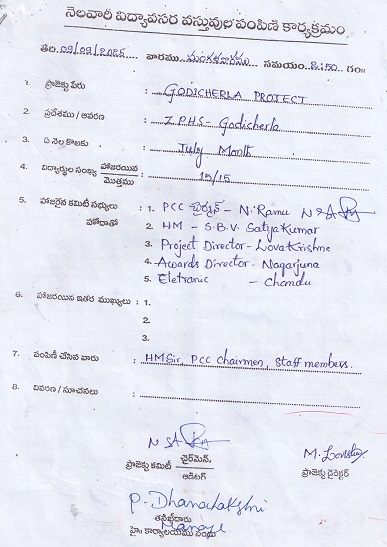 నెలవారీ విద్యావసర వస్తువుల పంపిణి కార్యక్రమం
తేది. 09/09/2025 వారము మంగళవారము సమయం. 8:50 గం॥
1. ప్రాజెక్టు పేరు : GODICHERLA PROJECT
2. ప్రదేశము / ఆవరణ : Z.P.H.S- Godicherla
3. ఏ నెల కొరకు : July Month
4. విద్యార్థుల సంఖ్య హాజరయిన / మొత్తము : 15/15
5. హాజరైన కమిటీ సభ్యులు : 1. PCC చైర్మన్ - N. Ramu
హోదాతో 2. HM - S.B.V. Satya Kumar
3. Project Director - Lova Krishna
4. Awards Director - Nagarjuna
5. Eletranic - Chandu
6. హాజరయిన ఇతర ముఖ్యులు : 1.
2.
3.
7. పంపిణీ చేసిన వారు : HM Sir, PCC chairmen, Staff members.
8. వివరణ / సూచనలు :
ప్రాజెక్టు కమిటీ చైర్మెన్, / ఆడిటర్
ప్రాజెక్టు డైరెక్టర్
P. Dhanalakshmi